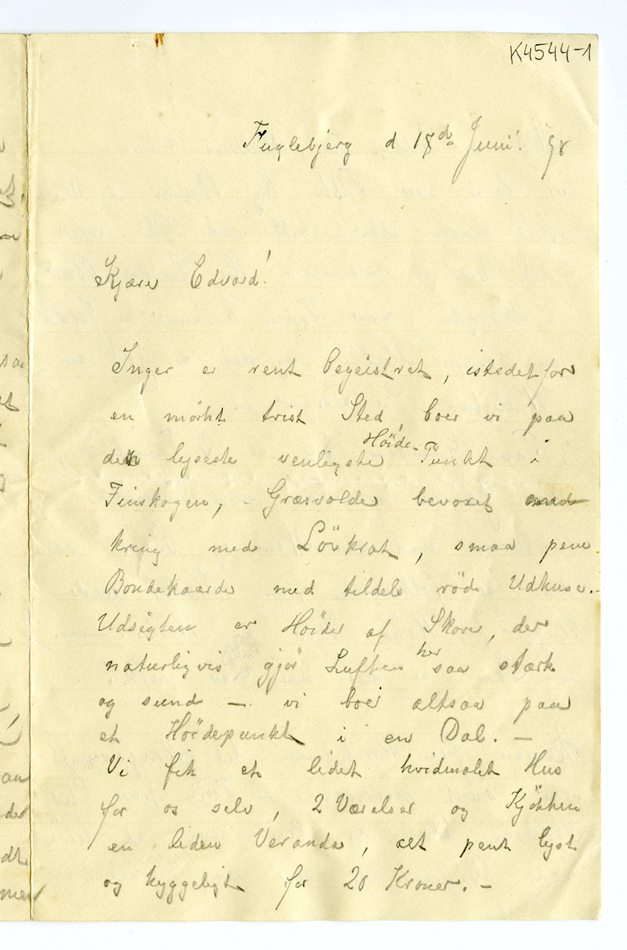 K4544-1
Fuglebjerg d 18de Juni! 98
Kjære Edvard!
Inger er rent begeistret, istedetfor
en mörkt trist Sted boer vi paa
den lyseste venligste Høide-Punkt i
Finskogen, - Græsvolde bevoxet
kring med Lövkrat, smaa pene
Bondegaarde med tildels röde Udhuse.-
Udsigten er Høider af Skove, der
naturligvis gjør Luften her saa stærk
og sund — vi boer altsaa paa
et Høidepunkt i en Dal. —
Vi fik et lidet hvidmalet Hus
for os selv, 2 Værelser og Kjökken
en liden Veranda, alt pent lyst
og hyggeligt for 20 Kroner. -